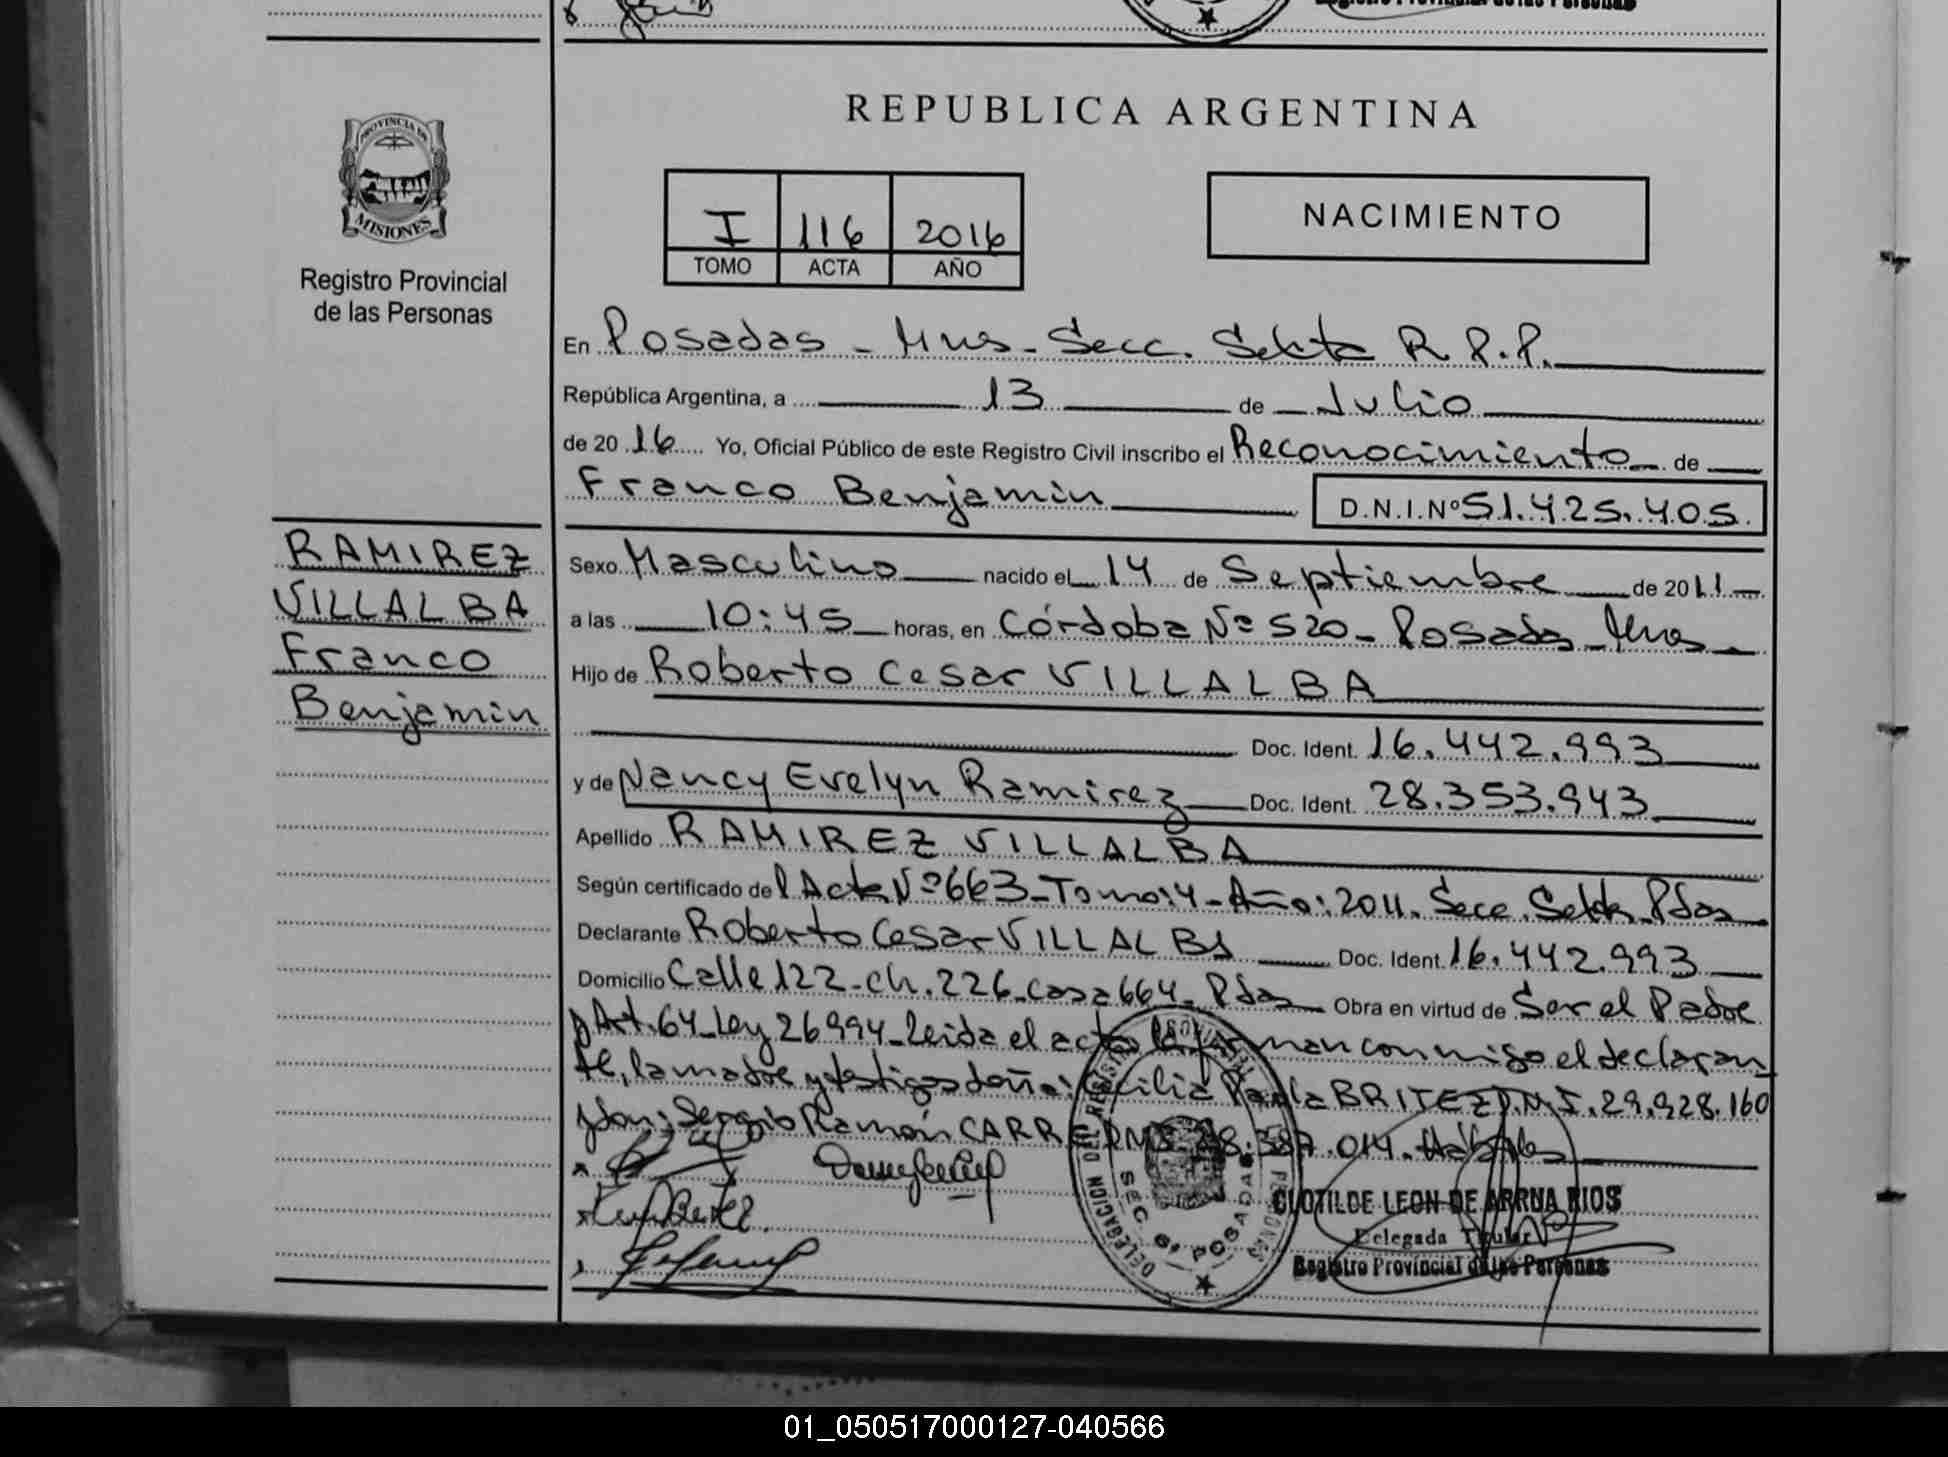 REPUBLICA ARGENTINA
PROVINCIA DE
MISIONES
Registro Provincial
de las Personas
I 116 2016
TOMO ACTA AÑO
NACIMIENTO
En Posadas - Mns - Secc. Sexta R.P.P.
República Argentina, a 13 de Julio
de 2016 Yo, Oficial Público de este Registro Civil inscribo el Reconocimiento de
Franco Benjamin D.N.I.Nº 51.425.405
RAMIREZ
VILLALBA
Franco
Benjamin
Sexo Masculino nacido el 14 de Septiembre de 2011
a las 10:45 horas, en Córdoba Nº 520 - Posadas - Mnes
Hijo de Roberto Cesar VILLALBA
Doc. Ident. 16.442.993
y de Nancy Evelyn Ramirez Doc. Ident. 28.353.943
Apellido RAMIREZ VILLALBA
Según certificado del Acta Nº 663 - Tomo: 4 - Año: 2011. Secc. Sexta Pdas
Declarante Roberto Cesar VILLALBA Doc. Ident. 16.442.993
Domicilio Calle 122 - ch. 226 - casa 664 - Pdas Obra en virtud de Ser el Padre
Art. 64 - Ley 26994 - Leida el acta la firman conmigo el declaran
te, la madre y testigos doña: Cecilia Paola BRITEZ D.N.I. 29.928.160
y don: Sergio Ramón
DELEGACION DEL REGISTRO PROVINCIAL
SEC. 6ª POSADAS
CLOTILDE LEON DE ARRUA RIOS
Delegada Titular
Registro Provincial de las Personas
01_050517000127-040566